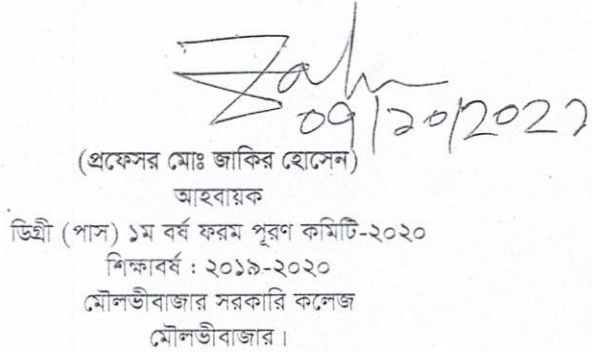 Zak
09/10/2022
(প্রফেসর মোঃ জাকির হোসেন)
আহবায়ক
ডিগ্রী (পাস) ১ম বর্ষ ফরম পূরণ কমিটি-২০২০
শিক্ষাবর্ষ : ২০১৯-২০২০
মৌলভীবাজার সরকারি কলেজ
মৌলভীবাজার।